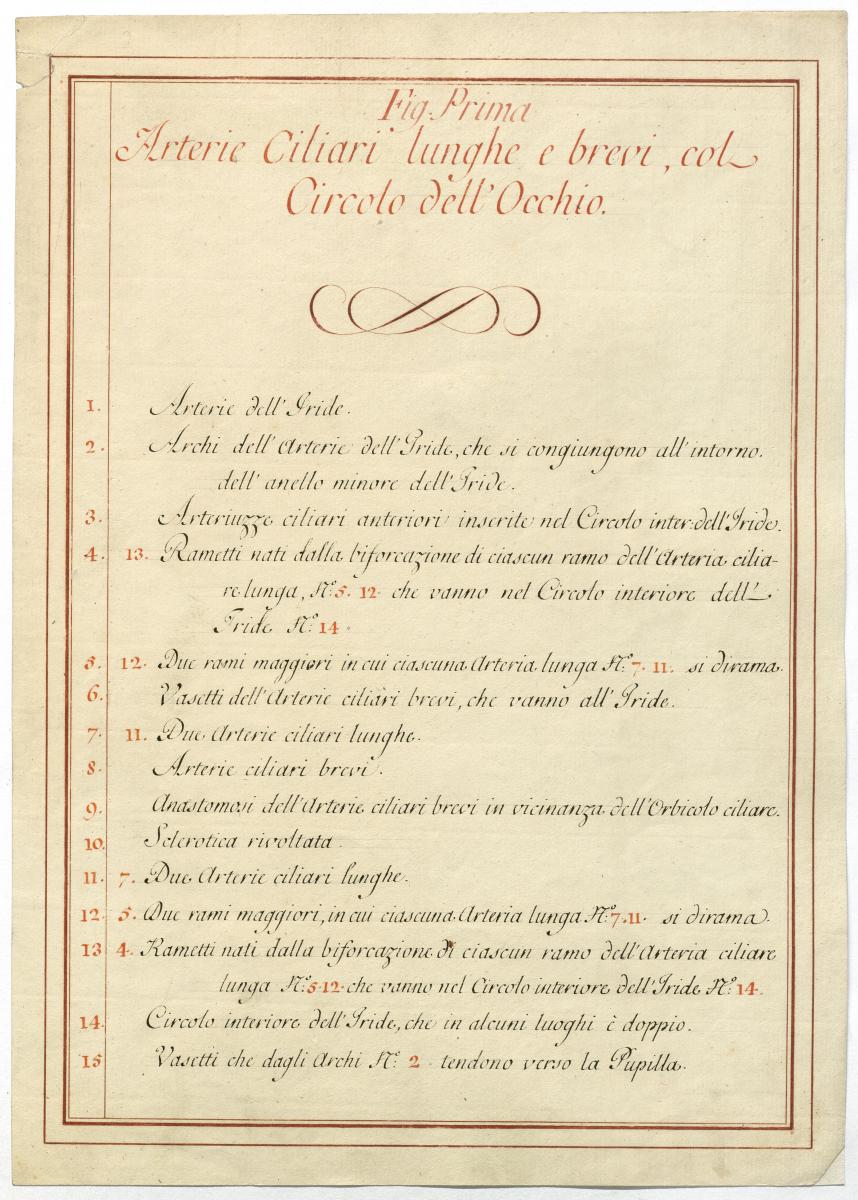 Fig. Prima
Arterie Ciliari lunghe e brevi, col
Circolo dell'Occhio.
1. Arterie dell'Iride.
2. Archi dell'Arterie dell'Iride, che si congiungono all'intorno.
dell'anello minore dell'Iride.
3. Arteriuzze ciliari anteriori inserite nel Circolo inter: dell'Iride.
4. 13. Rametti nati dalla biforcazione di ciascun ramo dell'Arteria cilia-
re lunga, N.º 5. 12 che vanno nel Circolo interiore dell'
Iride N.º 14.
5. 12. Due rami maggiori in cui ciascuna Arteria lunga N.º 7. 11. si dirama.
6. Vasetti dell'Arterie ciliari brevi, che vanno all'Iride.
7. 11. Due Arterie ciliari lunghe.
8. Arterie ciliari brevi.
9. Anastomosi dell'Arterie ciliari brevi in vicinanza dell'Orbicolo ciliare.
10. Sclerotica rivoltata.
11. 7. Due Arterie ciliari lunghe.
12. 5. Due rami maggiori, in cui ciascuna Arteria lunga N.º 7. 11. si dirama.
13 4. Rametti nati dalla biforcazione di ciascun ramo dell'Arteria ciliare
lunga N.º 5 12. che vanno nel Circolo interiore dell'Iride N.º 14.
14. Circolo interiore dell'Iride, che in alcuni luoghi è doppio.
15 Vasetti che dagli Archi N.º 2 tendono verso la Pupilla.